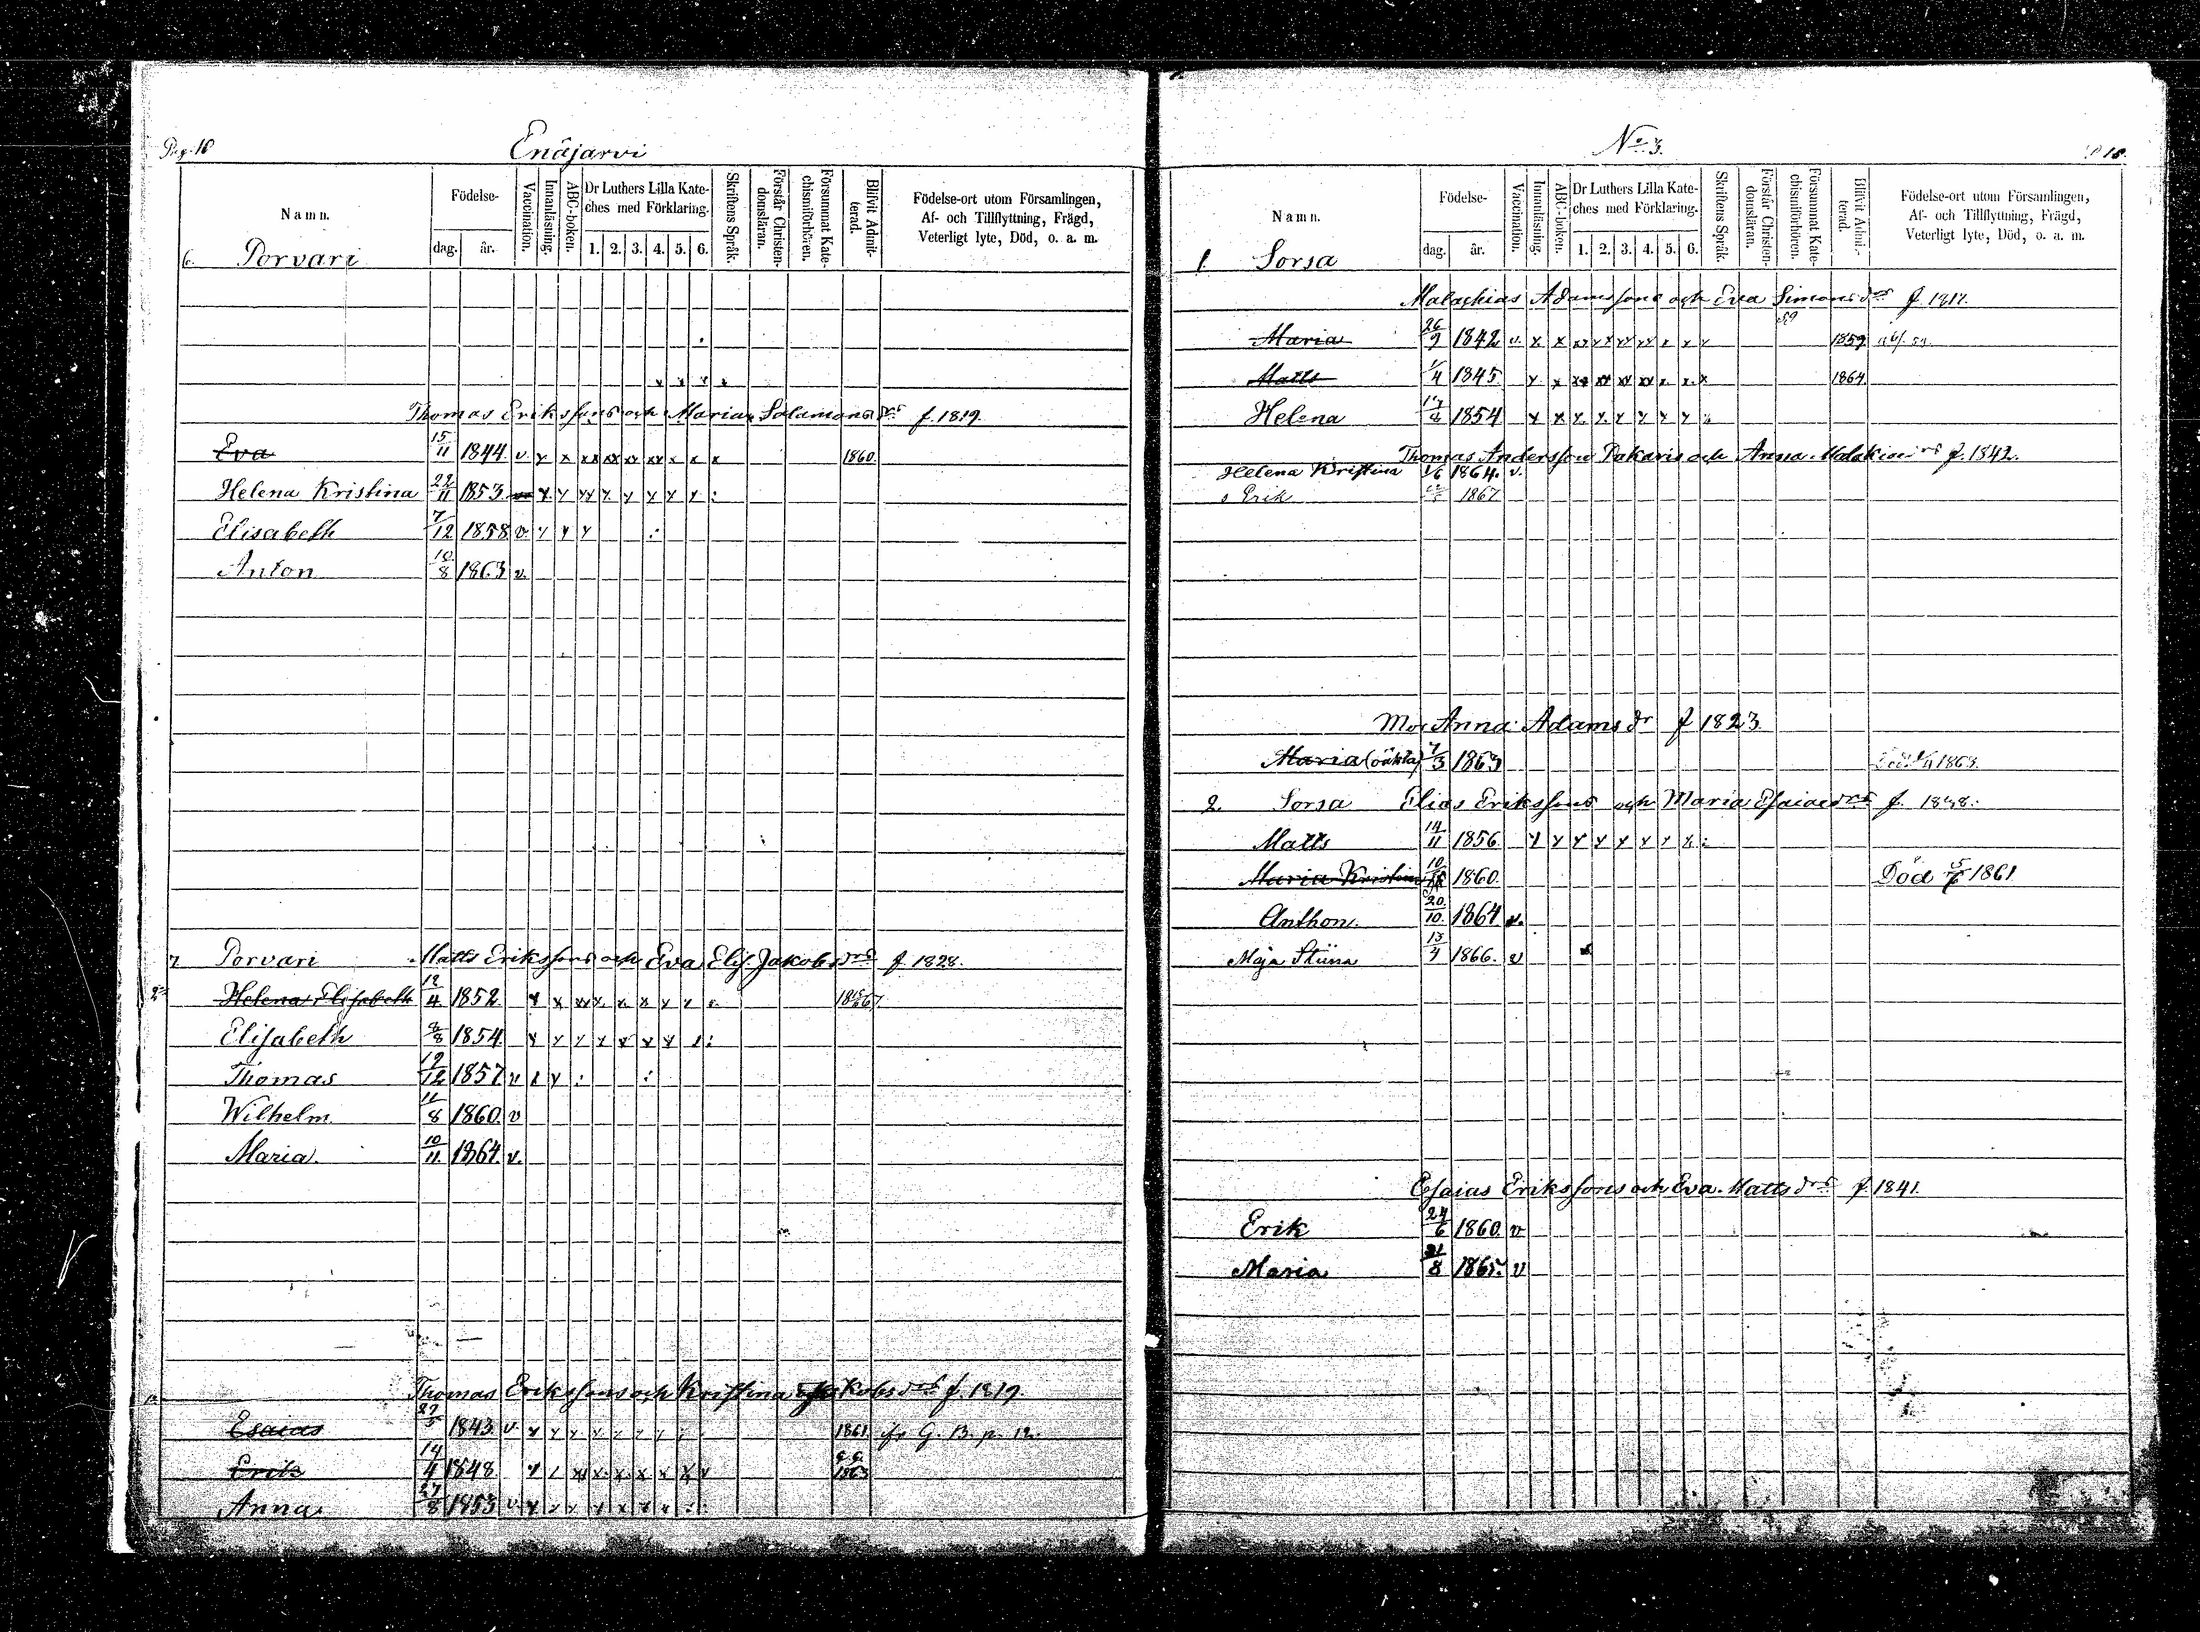 Pag. 16
Enäjarvi
Namn.
Födelse-
dag.
år.
Vaccination.
Innanläsning.
ABC-boken.
Dr Luthers Lilla Kate-
ches med Förklaring.
1. 2. 3. 4. 5. 6.
Skriftens Språk.
Förstår Christen-
domsläran.
Försummat Kate-
chismiförhören.
Blifvit Admit-
terad.
Födelse-ort utom Församlingen,
Af- och Tillflyttning, Frägd,
Veterligt lyte, Död, o. a. m.
6. Porvari
x x x x
Thomas Erikssons och Maria Salamons drs f. 1819.
Eva 15/11 1844. v. x x xx xx xx xx x x x 1860.
Helena Kristina 22/11 1853 x x xx x x x x x :
Elisabeth 7/12 1858 v. x x x :
Anton 10/8 1863 v.
7 Porvari Matts Erikssons och Eva Elis. Jakobs drs f 1828.
Helena Elisabeth 12/4 1852 x x xx x. x x x x
Elisabeth 8/8 1854 x x x x x x x x :
Thomas 19/12 1857 v x x : :
Wilhelm. 11/8 1860. v
Maria. 10/11. 1864. v.
Thomas Erikssons och Kristina Jakobs drs f. 1819.
Esaias 1843 v. x x x x x x x 1861 G. B. p. 12.
Erik 14/4 1848 x x xx x. x. x x x v 1863
Anna 27/8 1853 v. x x x x x x x :
No 3.
Namn.
Födelse-
dag.
år.
Vaccination.
Innanläsning.
ABC-boken.
Dr Luthers Lilla Kate-
ches med Förklaring.
1. 2. 3. 4. 5. 6.
Skriftens Språk.
Förstår Christen-
domsläran.
Försummat Kate-
chismiförhören.
Blifvit Admit-
terad.
Födelse-ort utom Församlingen,
Af- och Tillflyttning, Frägd,
Veterligt lyte, Död, o. a. m.
1. Sorsa
Malachias Adamssons och Eva Simons drs f. 1817.
Maria 26/9 1842 v. x x xx xx xx xx x x x 1859
Matts 1/4 1845. x x xx xx xx xx x. x. x 1864.
Helena 1854 x x x. x. x x x x
Thomas Andersson Pakaris och Anna Malakias drs f. 1842.
Helena Kristina 1/6 1864. v.
s Erik 1867
Mor Anna Adams dr f 1823
Maria (oäkta) 7/3 1863 1863.
2. Sorsa Elias Erikssons och Maria Esaiae drs f. 1838.
Matts 14/11 1856 x x x x x x x x :
Maria Kristina 1860. Död 5/6 1861
Anthon. 20/10. 1864 v.
Maja Stiina 13/4 1866. v
Esaias Erikssons och Eva Matts drs f 1841.
Erik 24/6 1860. v
Maria 21/8 1865. v